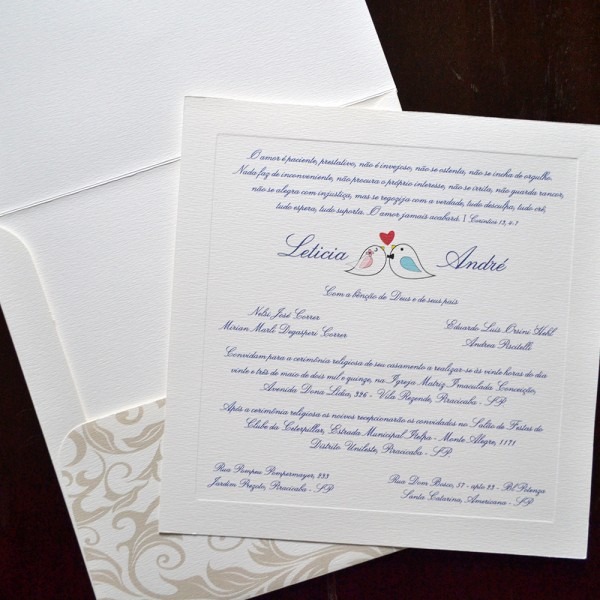 O amor é paciente, prestativo, não é invejoso, não se ostenta, não se incha de orgulho.
Nada faz de inconveniente, não procura o próprio interesse, não se irrita, não guarda rancor,
não se alegra com injustiça, mas se regozija com a verdade, tudo desculpa, tudo crê,
tudo espera, tudo suporta. O amor jamais acabará. I Coríntios 13, 4-7
Leticia André
Com a bênção de Deus e de seus pais
Nelsi José Correr
Mirian Marli Degasperi Correr
Eduardo Luis Orsini Kehl
Andrea Piscitelli
Convidam para a cerimônia religiosa de seu casamento a realizar-se às vinte horas do dia
vinte e três de maio de dois mil e quinze, na Igreja Matriz Imaculada Conceição,
Avenida Dona Lídia, 326 - Vila Rezende, Piracicaba - SP.
Após a cerimônia religiosa os noivos recepcionarão os convidados no Salão de Festas do
Clube da Caterpillar, Estrada Municipal Itelpa - Monte Alegre, 1171
Distrito Unileste, Piracicaba - SP.
Rua Pompeu Pompermayer, 233
Jardim Prezoto, Piracicaba - SP
Rua Dom Bosco, 57 - apto 33 - Bl Potenza
Santa Catarina, Americana - SP